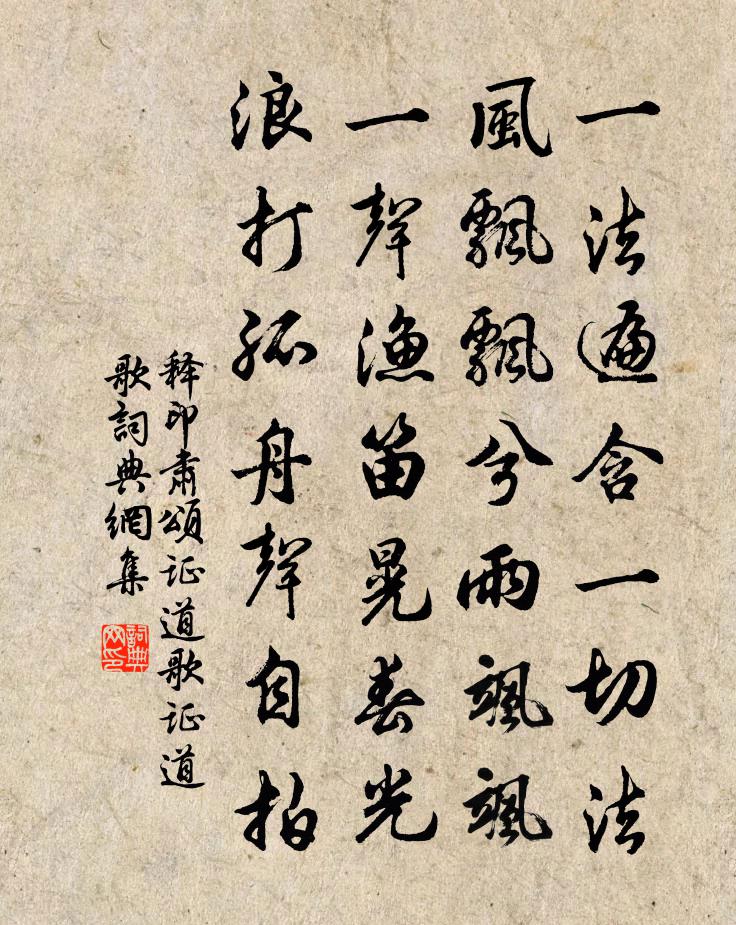 一法遍含一切法
風飄飄兮雨颯颯
一聲漁笛晃春光
浪打孤舟聲自拍
释印肅頌证道歌证道
歌詞典網集
詞典
网印